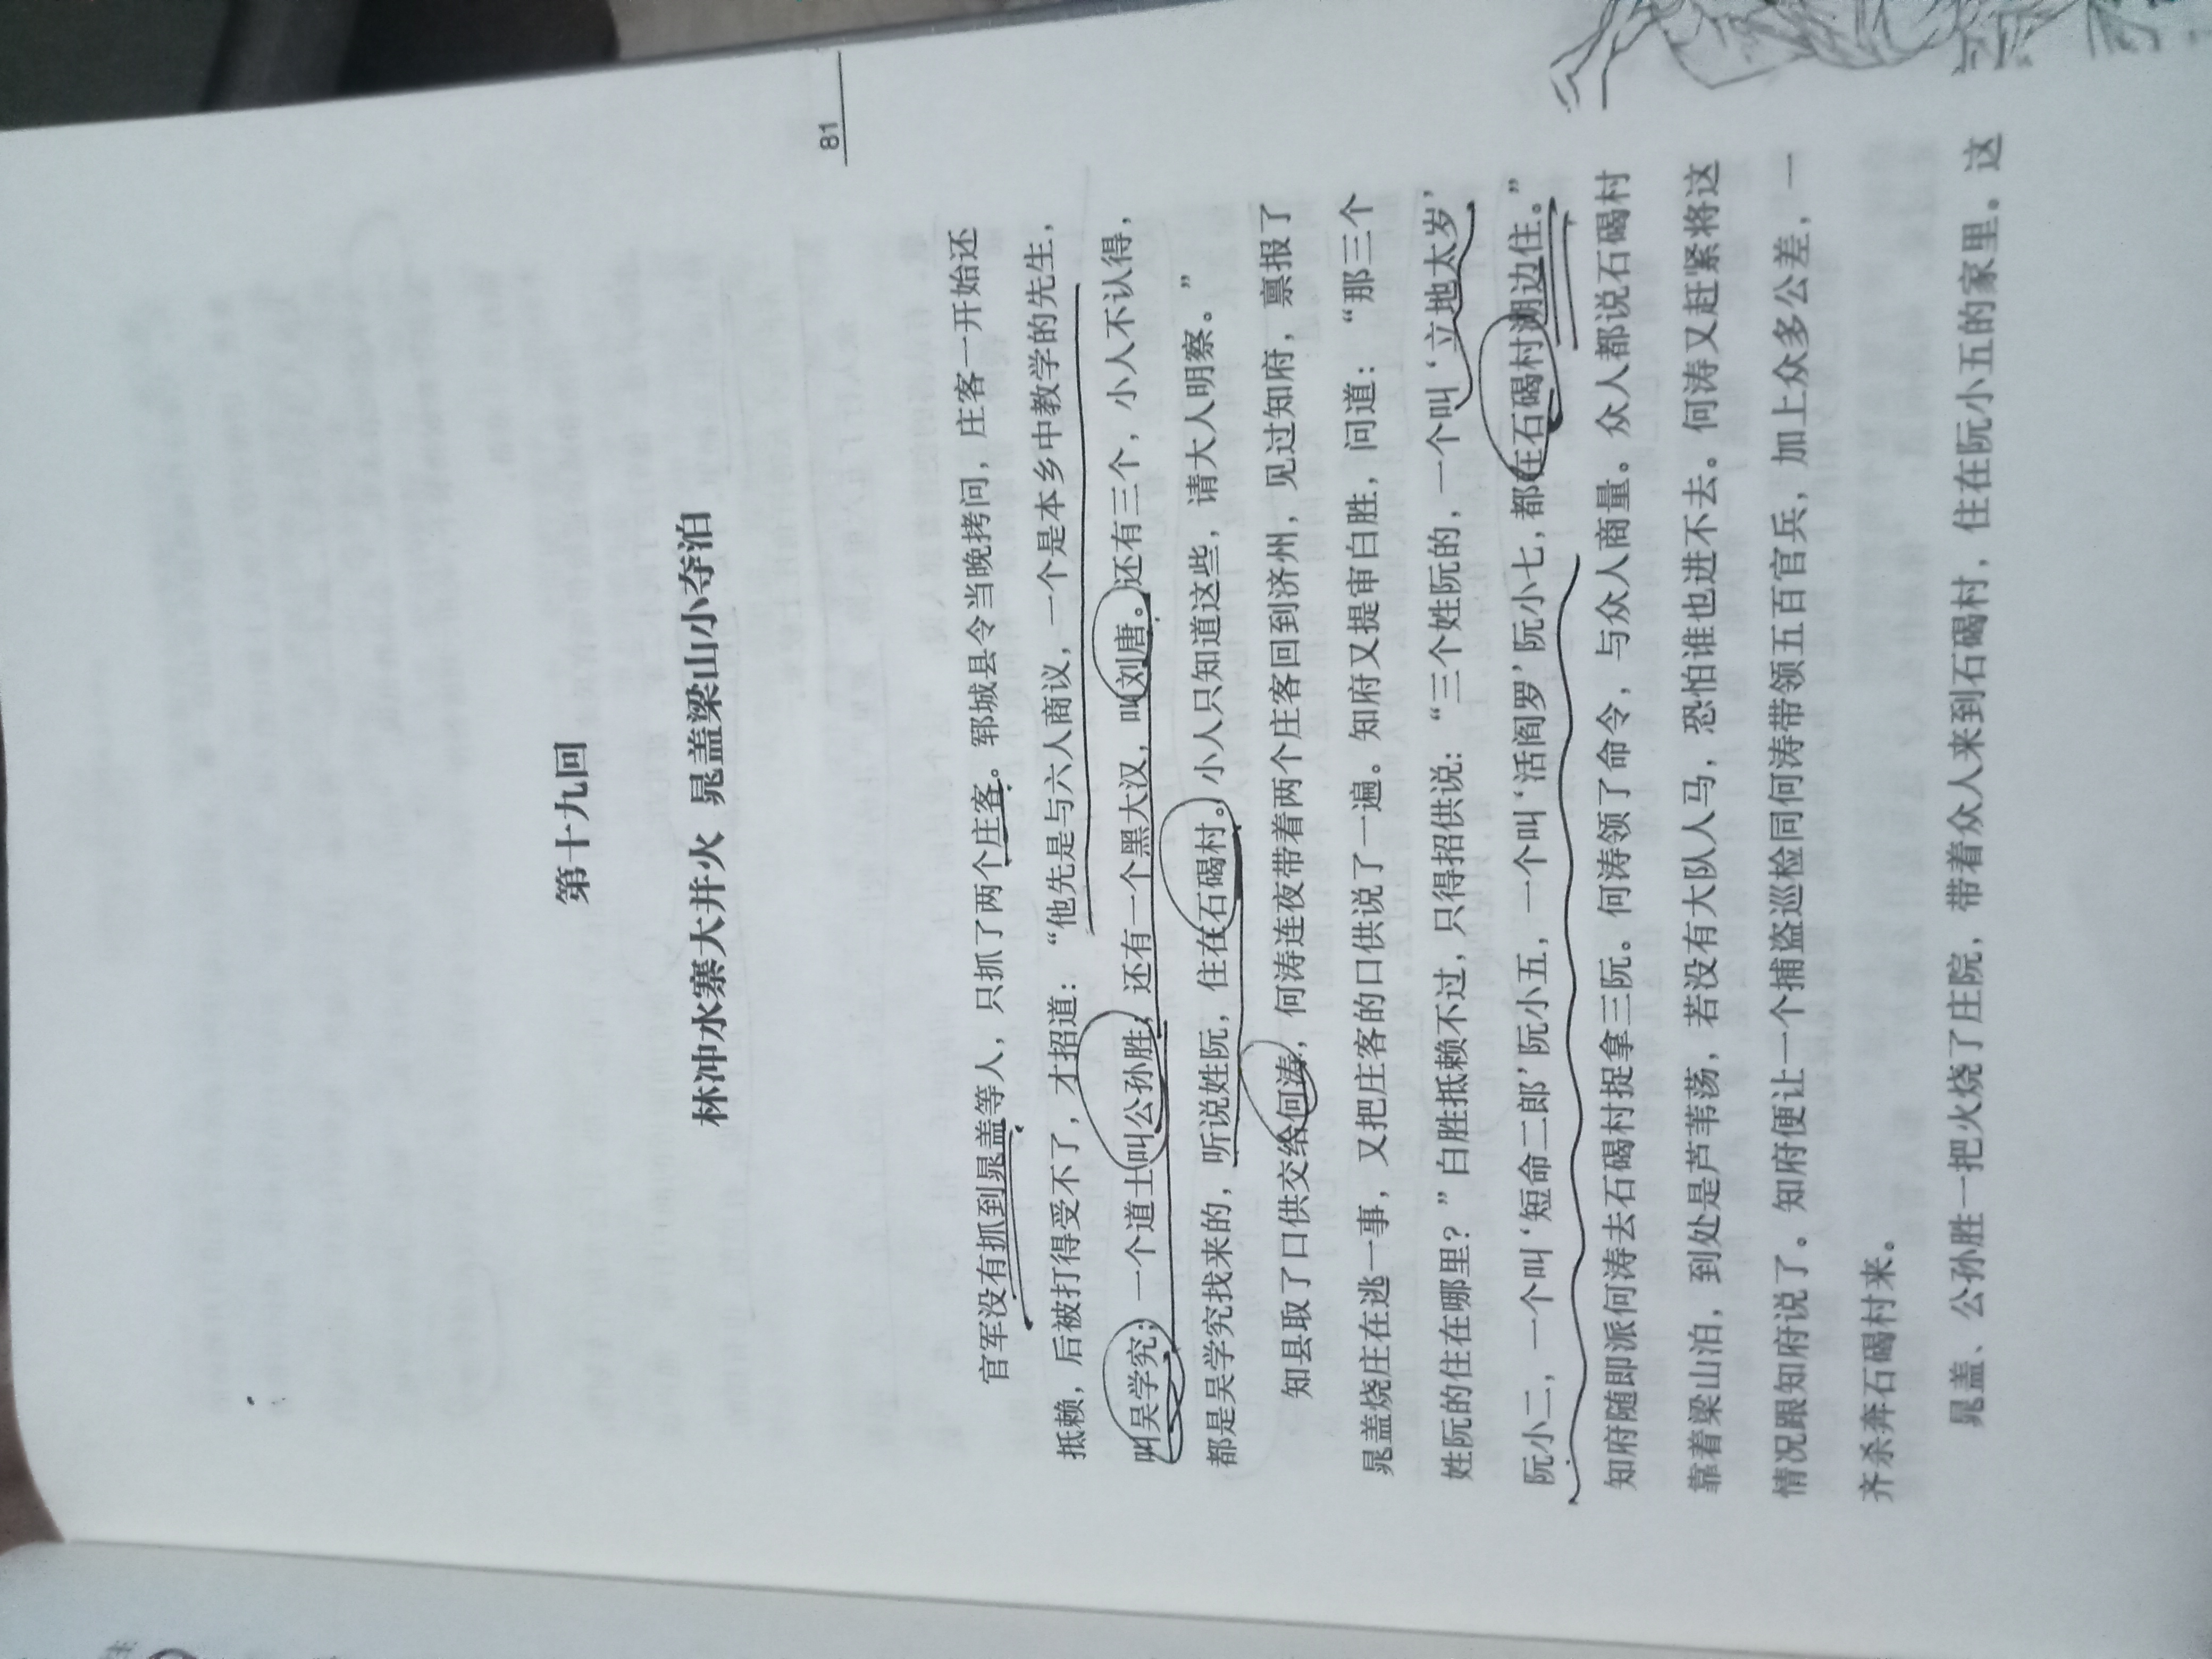 81
第十九回
林冲水寨大并火 晁盖梁山小夺泊
官军没有抓到晁盖等人，只抓了两个庄客。郓城县令当晚拷问，庄客一开始还
抵赖，后被打得受不了，才招道：“他先是与六人商议，一个是本乡中教学的先生，
叫吴学究；一个道士叫公孙胜，还有一个黑大汉，叫刘唐。还有三个，小人不认得，
都是吴学究找来的，听说姓阮，住在石碣村。小人只知道这些，请大人明察。”
知县取了口供交给何涛，何涛连夜带着两个庄客回到济州，见过知府，禀报了
晁盖烧庄在逃一事，又把庄客的口供说了一遍。知府又提审白胜，问道：“那三个
姓阮的住在哪里？”白胜抵赖不过，只得招供说：“三个姓阮的，一个叫‘立地太岁’
阮小二，一个叫‘短命二郎’阮小五，一个叫‘活阎罗’阮小七，都在石碣村湖边住。”
知府随即派何涛去石碣村捉拿三阮。何涛领了命令，与众人商量。众人都说石碣村
靠着梁山泊，到处是芦苇荡，若没有大队人马，恐怕谁也进不去。何涛又赶紧将这
情况跟知府说了。知府便让一个捕盗巡检同何涛带领五百官兵，加上众多公差，一
齐杀奔石碣村来。
晁盖、公孙胜一把火烧了庄院，带着众人来到石碣村，住在阮小五的家里。这